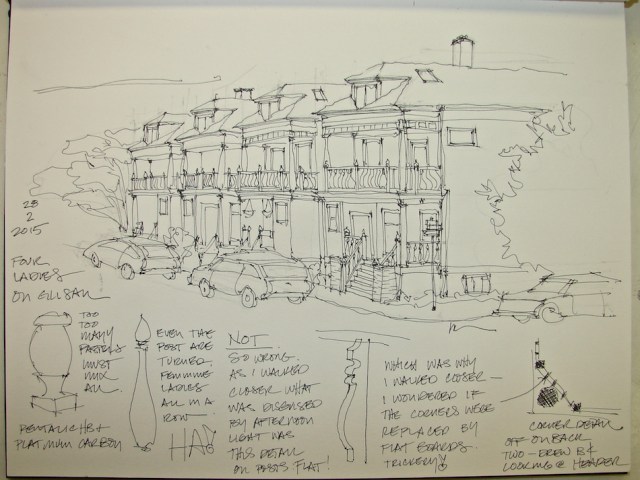 28
2
2015
FOUR
LADIES
ON
TOO
TOO
MANY
MUST
MIX
ALL.
PENTALIC HB +
PLATINUM CARBON
EVEN THE
POST ARE
TURNED.
FEMININE
LADIES
ALL IN A
ROW.
HA!
NOT
SO WRONG.
AS I WALKED
CLOSER WHAT
WAS DISGUISED
BY AFTERNOON
LIGHT WAS
THIS DETAIL
ON POSTS FLAT!
WHICH WAS WHY
I WALKED CLOSER —
I WONDERED IF
THE CORNERS WERE
REPLACED BY
FLAT BOARDS.
TRICKERY!
CORNER DETAIL
OFF ON BACK
TWO - DREW BY
LOOKING @ HEADER